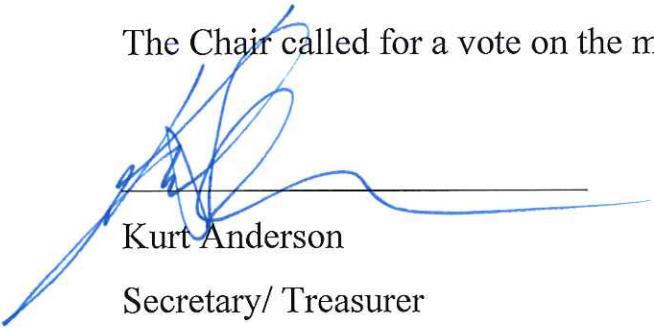 The Chair called for a vote on the m
Kurt Anderson
Secretary/ Treasurer